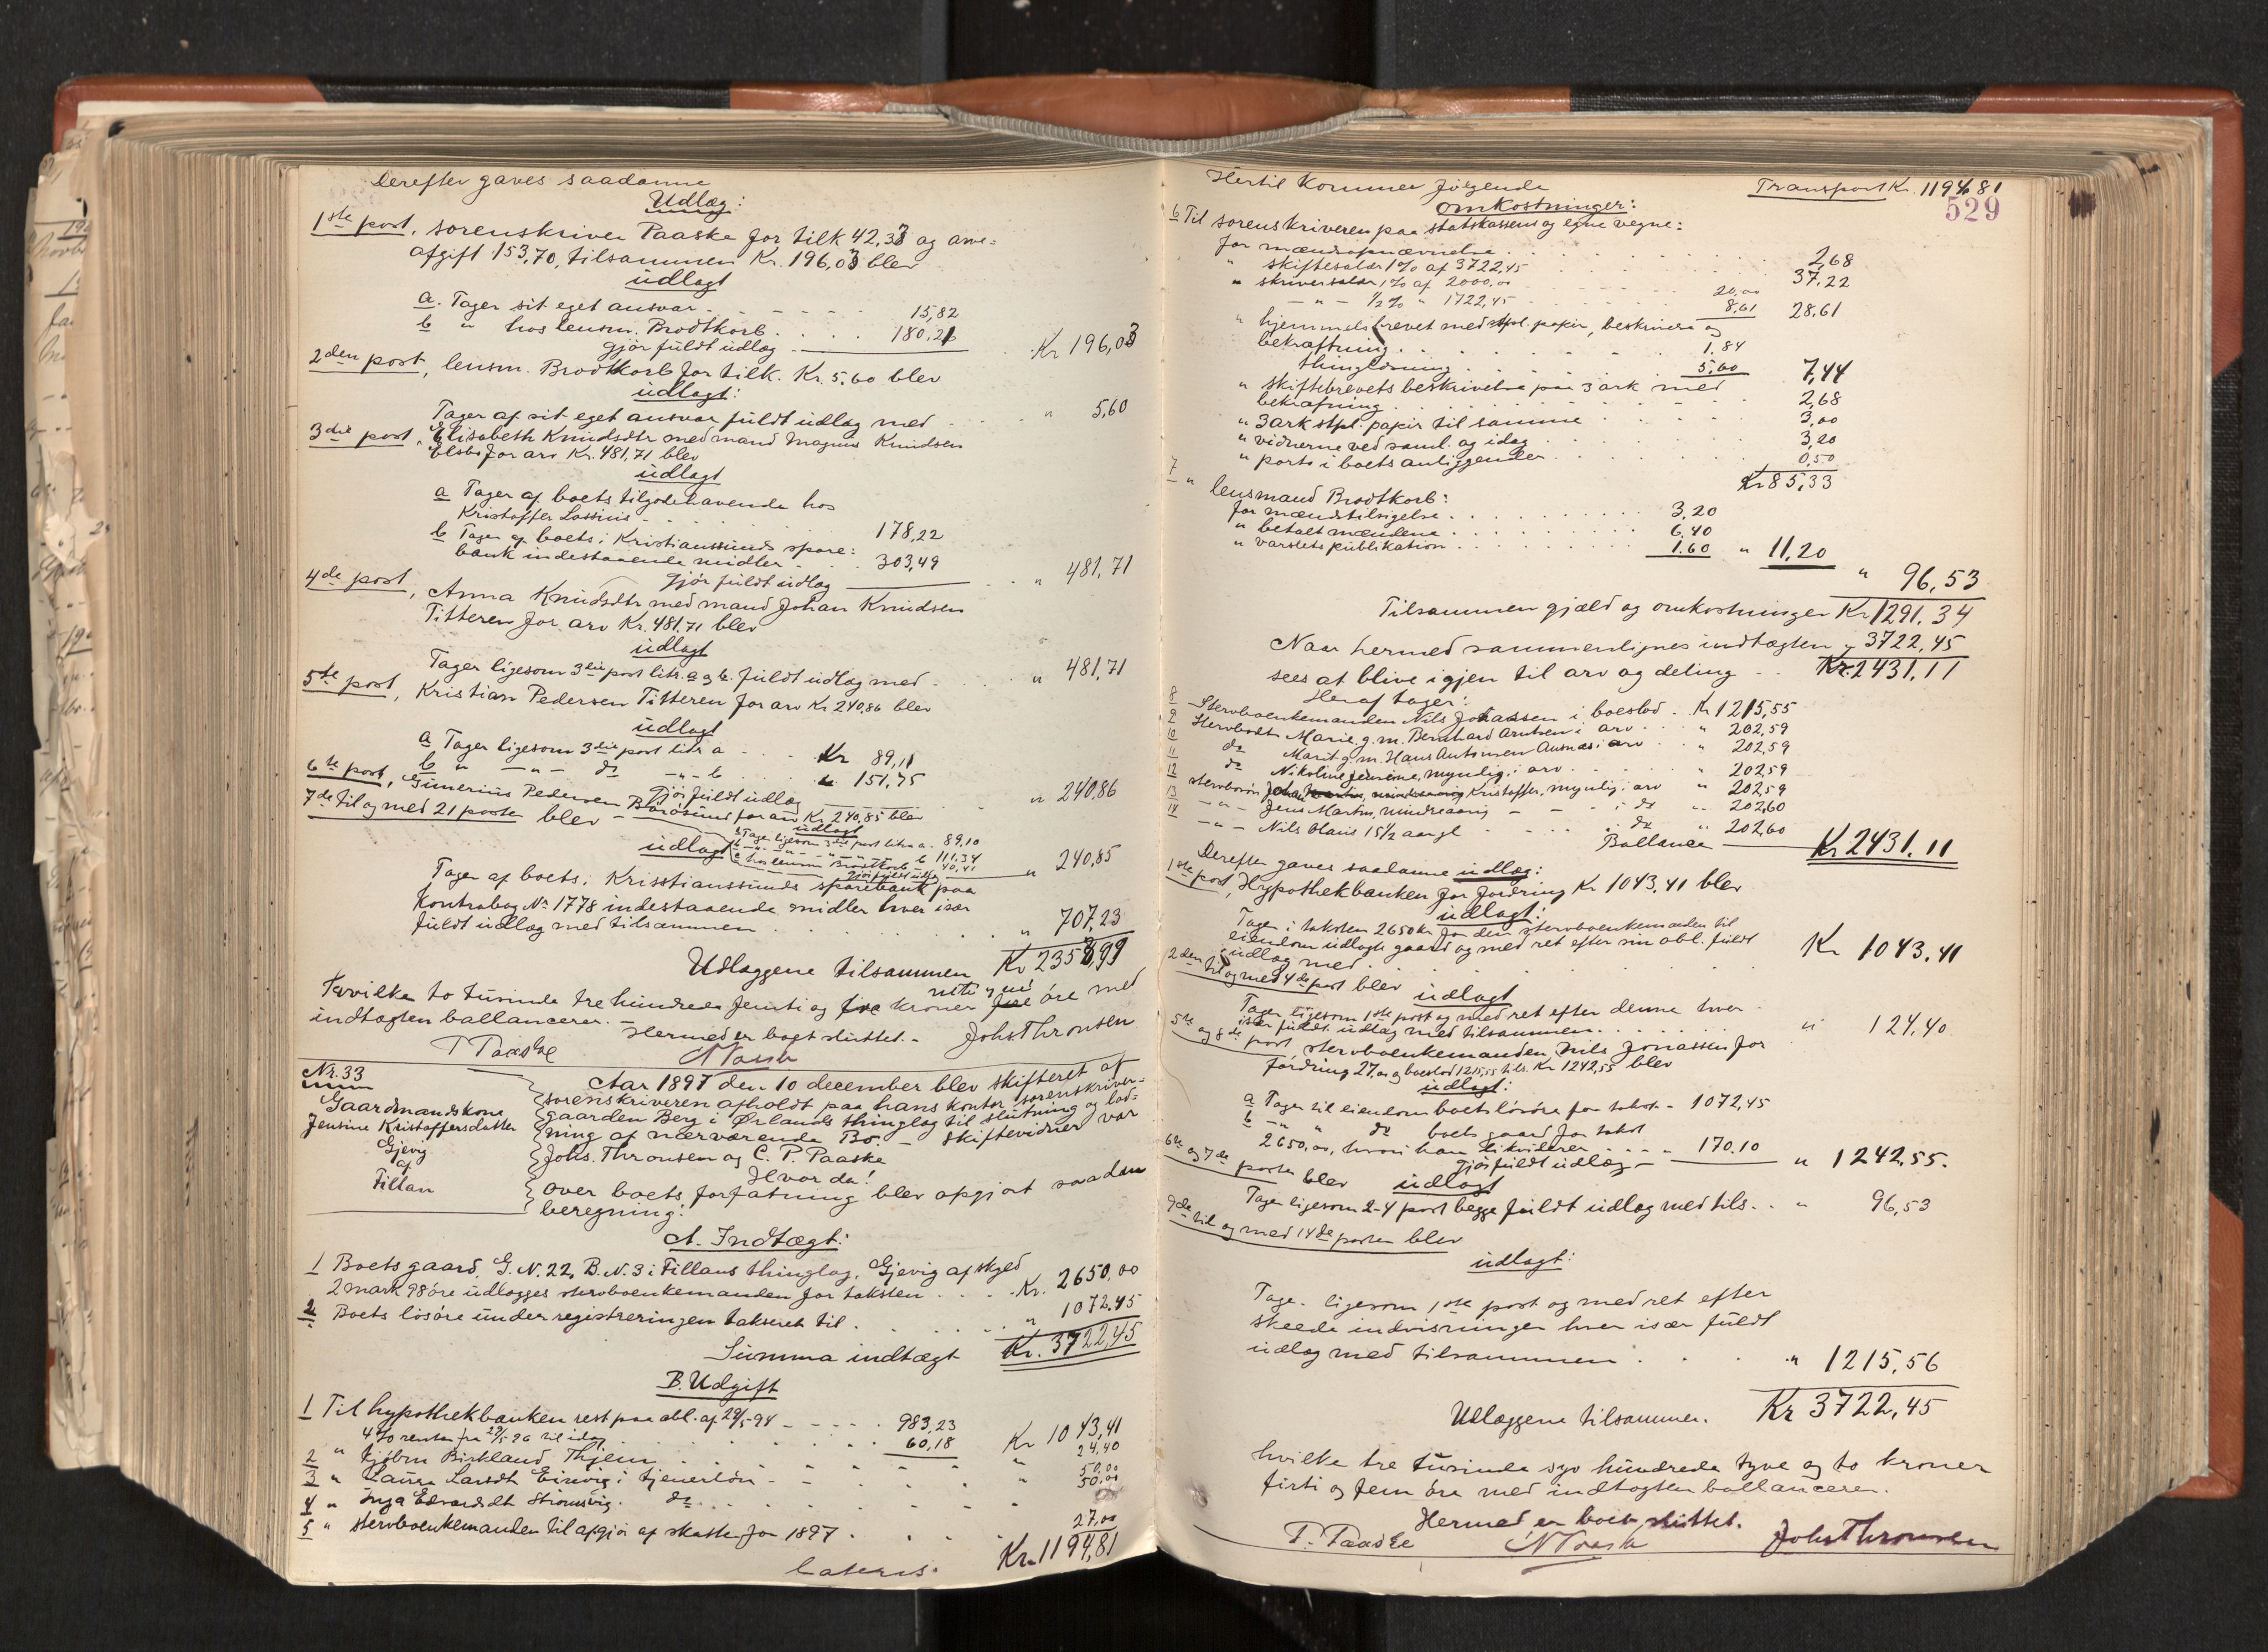 Derefter gaves saadanne
Udlæg:
1ste post, sorenskriver Paaske for tilk 42,33 og arve=
afgift 153,70, tilsammen Kr. 196,03 blev
udlagt
a. Tager sit eget ansvar 15,82
b " hos lensm. Brodtkorb. 180,21
gjør fuldt udlæg Kr 196,03
2den post, lensm. Brodtkorb for tilk. Kr. 5.60 blev
udlagt:
Tager af sit eget ansvar fuldt udlæg med " 5,60
3die post, Elisabeth Knudsdtr med mand Magnus Knudsen
for arv Kr. 481,71 blev
udlagt
a Tager af boets tilgodehavende hos
Kristoffer Lossius 178,22
b Tager af boets i Kristianssunds spare=
bank indestaaende midler 303,49
gjør fuldt udlæg " 481,71
4de post, Anna Knudsdtr med mand Johan Knudsen
Titteren for arv Kr. 481,71 blev
udlagt
Tager ligesom 3die post litr. a og b. fuldt udlæg med " 481,71
5te post, Kristian Pedersen Titteren for arv Kr 240,86 blev
udlagt
a Tager ligesom 3die post litr a Kr 89,11
b " - " - do - " - b " 151,75
gjør fuldt udlæg " 240,86
6te post, Gunerius Pedersen Borøsund for arv Kr. 240,85 blev
udlagt
a Tager ligesom 3die post litra a. 89,10
b - " - b 111,34
c hos lensm Brodtkorb 40,41
gjør fuldt udlæg " 240,85
7de til og med 21 poster blev
udlagt
Tager af boets i Kristianssunds sparebank paa
Kontrabog No 1778 indestaaende midler hver især
fuldt udlæg med tilsammen " 707,23
Udlæggene tilsammen Kr 2353,99
hvilke to tusinde tre hundrede femti og tre kroner nitti og ni øre med
indtægten ballancerer. -
Hermed er boet sluttet. -
P Paaske Johs. Thronsen
Nr. 33
Gaardmandskone
Jensine Kristoffersdatter
Gjevig
af
Fillan
Aar 1897 den 10 december blev skifteret af
sorenskriveren afholdt paa hans kontor sorenskriver=
gaarden Berg i Ørlands thinglag til slutning og lod=
ning af nærværende Bo. - Skiftevidner var
Johs. Thronsen og C. P. Paaske
Hvor da!
over boets forfatning blev opgjort saadan
beregning:
A. Indtægt:
1 Boets gaard, G. N. 22, B. N. 3 i Fillans thinglag, Gjevig af skyld
2 mark 98 øre udlægges stervboenkemanden for taksten Kr. 2650,00
2 Boets løsøre under registreringen takseret til " 1072.45
Summa indtægt Kr. 3722,45
B. Udgift
1 Til hypothekbanken rest paa obl. af 29/5-94 983,23
4% renter fra 29/5 96 til idag 60,18 Kr 1043,41
2 " Birkland Thjem " 24.40
3 " Laura Larsdt i tjenerløn " 50,00
4 " Inga Edvardsdt Strømsvig. do 50,00
5 " stervboenkemanden til afgjør af skatter for 1897 27,00
Lateris: Kr. 1194,81
Hertil kommer følgende Transport Kr. 1194,81
529
omkostninger:
6 Til sorenskriveren paa statskassens og egne vegne:
for mændsopnævnelse 2,68
" skiftesalær 1% af 3722,45 37,22
" skriversalær 1% af 2000,00 20,00
- " - 1/2% " 1722,45 8,61 28,61
" hjemmelsbrevet med stpl. papir, beskrivelse og
bekræftning 1.84
thinglæsning 5,60 7,44
" skiftebrevets beskrivelse paa 3 ark med
bekræfning 2,68
" 3 ark stpl. papir til samme 3,00
" vidnerne ved saml. og idag 3,20
" porto i boets anliggender 0,50
Kr 85,33
7 " lensmand Brodtkorb:
for mændstilsigelse 3,20
" betalt mændene 6,40
" varslets publikation 1.60 " 11,20
" 96,53
Tilsammen gjæld og omkostninger Kr 1291,34
Naar hermed sammenlignes indtægten " 3722,45
sees at blive igjen til arv og deling Kr. 2431,11
Heraf tager:
8 Stervboenkemanden Nils Jonassen i boeslod Kr 1215,55
9 Stervbodtr Marie g. m. Bernhard Arntsen i arv " 202,59
10 do Marit g. m. Hans Antonsen Ausnæs i arv " 202,59
11 do Nikoline Jensine, myndig, i arv " 202,59
12 stervbosøn Kristoffer, myndig, i arv " 202,59
13 - " - Jens Martin, mindreaarig i do " 202,60
14 - " - Nils Olaus 15 1/2 aar gl i do " 202,60
Ballance Kr 2431,11
Derefter gaves saadanne udlæg:
1ste post, Hypothekbanken for fordring Kr 1043,41 blev
udlagt:
Tager i taksten 2650 Kr for den stervboenkemanden til
eiendom udlagte gaard og med ret efter sin obl. fuldt
udlæg med Kr 1043.41
2den til og med 4de post blev
udlagt
Tager ligesom 1ste post og med ret efter denne hver
især fuldt udlæg med tilsammen " 124,40
5te og 8de post, stervboenkemanden, Nils Jonassen for
fordring 27,00 og boeslod 1215,55 tils. Kr 1242,55 blev
udlagt:
a Tager til eiendom boets løsøre for takst. - 1072,45
b - " " do boets gaard for takst
2650,00, hvori han likviderer " 170.10
gjør fuldt udlæg " 1242,55.
6te og 7de poster blev udlagt
Tager ligesom 2-4 post begge fuldt udlæg med tils. " 96,53
9de til og med 14de poster blev
udlagt:
Tage. ligesom 1ste post og med ret efter
skeede indvisninger hver især fuldt
udlæg med tilsammen " 1215,56
Udlæggene tilsammen. Kr 3722,45
hvilke tre tusinde syv hundrede tyve og to kroner
firti og fem øre med indtægten ballancerer.
Hermed er boet sluttet.
P. Paaske Johs Thronsen